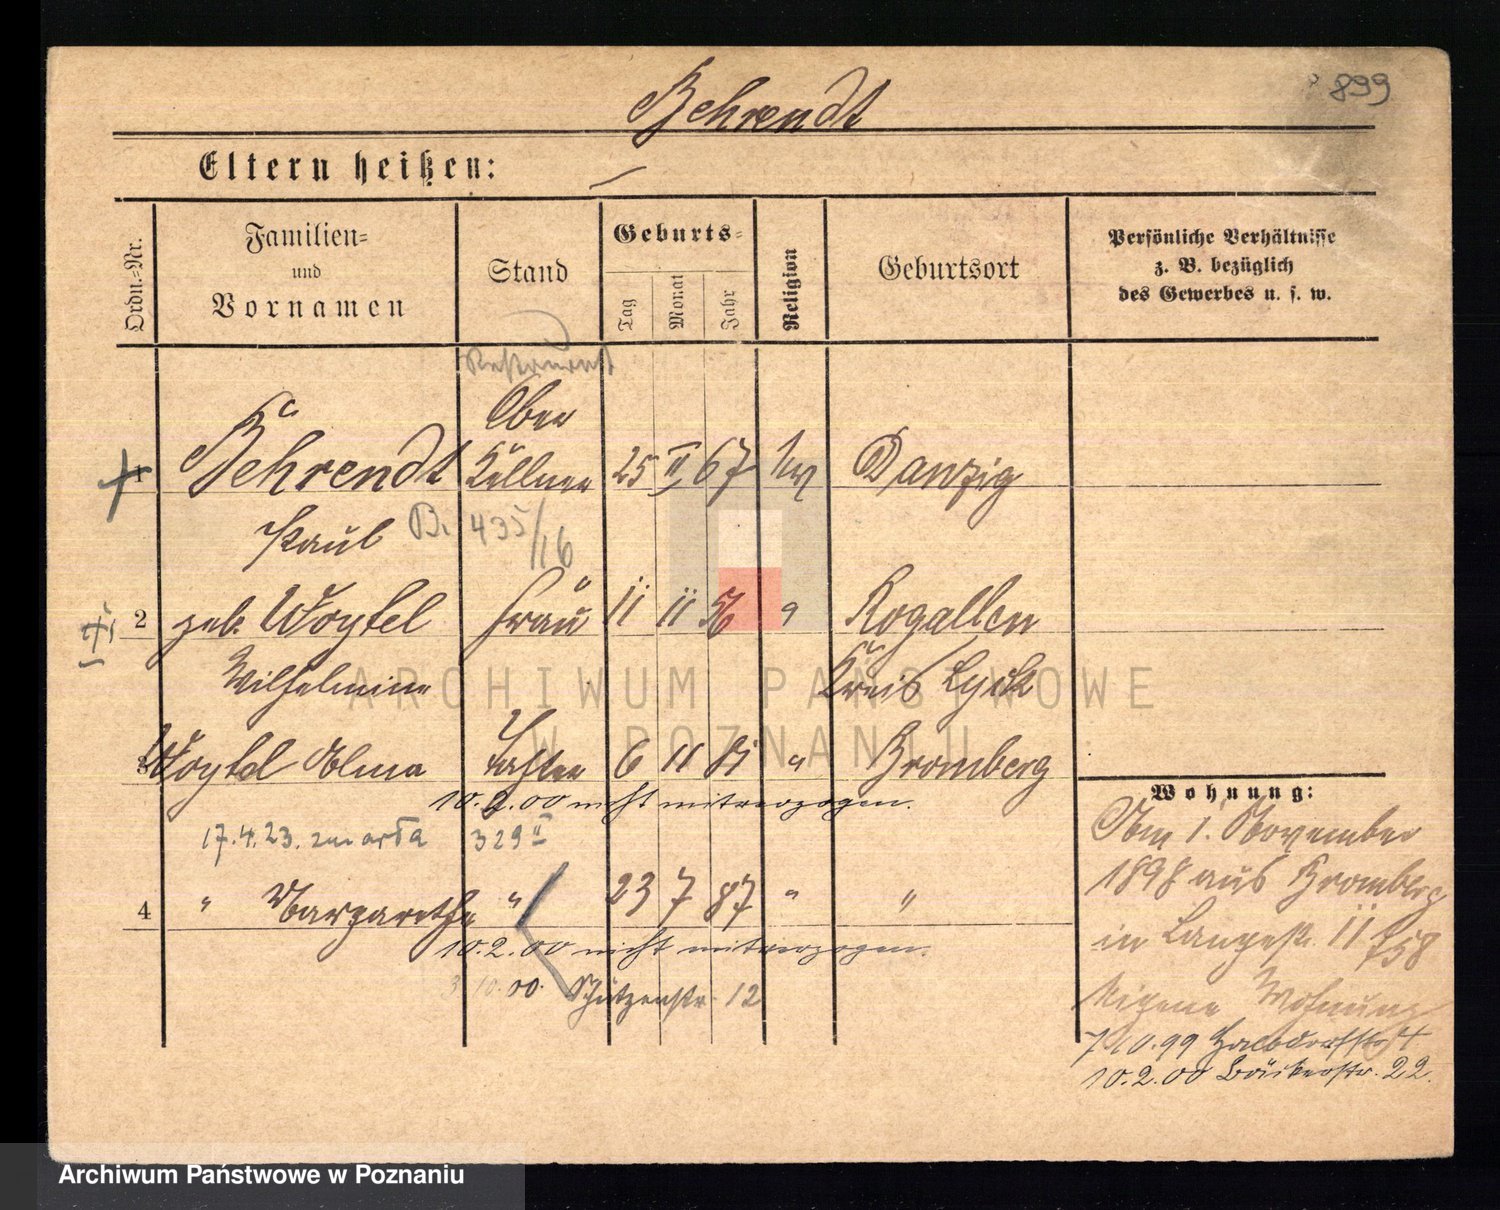 899
Behrendt
Eltern heißen: —
Ordn.-Nr.
Familien- und Vornamen
Stand
Geburts-
Tag
Monat
Jahr
Religion
Geburtsort
Persönliche Verhältnisse
z. B. bezüglich
des Gewerbes u. s. w.
Restaurant
Ober
1 Behrendt Kellner 25 II 67 Danzig
Paul B. 435/16
2 geb. Woytel Frau 11 11 56 Rogallen
Wilhelmine Kreis Lyck
3 Woytel Alma Tochter 6 11 81 " Bromberg
10.2.00 nicht mitverzogen.
17.4.23. zmarła 329 II
4 " Margarethe " 23 7 87 " "
10.2.00 nicht mitverzogen.
3 10.00. Schützenstr. 12
Wohnung:
Am 1. November
1898 aus Bromberg
in Langestr. 11
Eigene Wohnung
7.10.99 Halbdorfstr. 4
10.2.00 Bäckerstr. 22.
ARCHIWUM PAŃSTWOWE
W POZNANIU
Archiwum Państwowe w Poznaniu